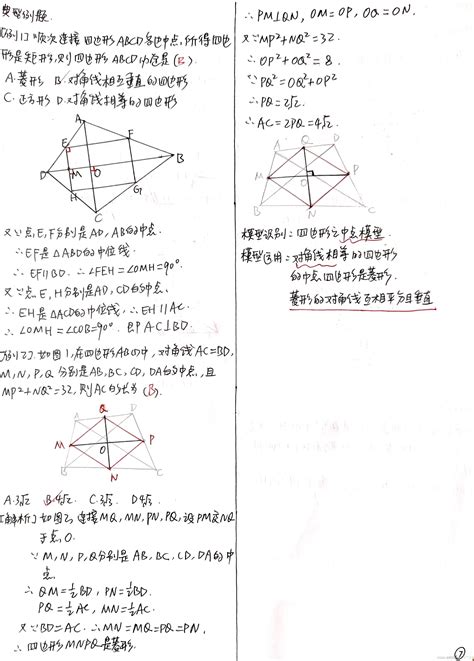 典型例题.
[例1] 顺次连接四边形ABCD各边中点,所得四边
形是矩形,则四边形ABCD一定是(B)
A.菱形 B.对角线相互垂直的四边形
C.正方形 D.对角线相等的四边形
A
E
F
D
M
O
B
H
G
C
又∵点E,F分别是AD,AB的中点.
∴EF是△ABD的中位线.
∴EF∥BD.∴∠FEH=∠OMH=90°.
又∵点E,H分别是AD,CD的中点.
∴EH是△ACD的中位线,∴EH∥AC.
∴∠OMH=∠COB=90°.即AC⊥BD.
[例2] 如图1,在四边形ABCD中,对角线AC=BD,
M,N,P,Q分别是AB,BC,CD,DA的中点,且
MP²+NQ²=32,则AC的长为(B).
A
Q
D
M
O
P
B
N
C
A.3√2 B.4√2 C.3√3 D.4√3
[解析] 如图2,连接MQ,MN,PN,PQ,设PM交NQ
于点O.
∵M,N,P,Q分别是AB,BC,CD,DA的中
点.
∴QM=½BD,PN=½BD.
PQ=½AC,MN=½AC.
又∵BD=AC.∴MN=MQ=PQ=PN.
∴四边形MNPQ是菱形.
∴PM⊥QN,OM=OP,OQ=ON.
又∵MP²+NQ²=32.
∴OP²+OQ²=8.
∵PQ²=OQ²+OP²
∴PQ=2√2.
∴AC=2PQ=4√2.
A
Q
D
M
O
P
B
N
C
模型识别:四边形之中点模型.
模型应用:对角线相等的四边形
的中点四边形是菱形.
菱形的对角线互相平分且垂直
7